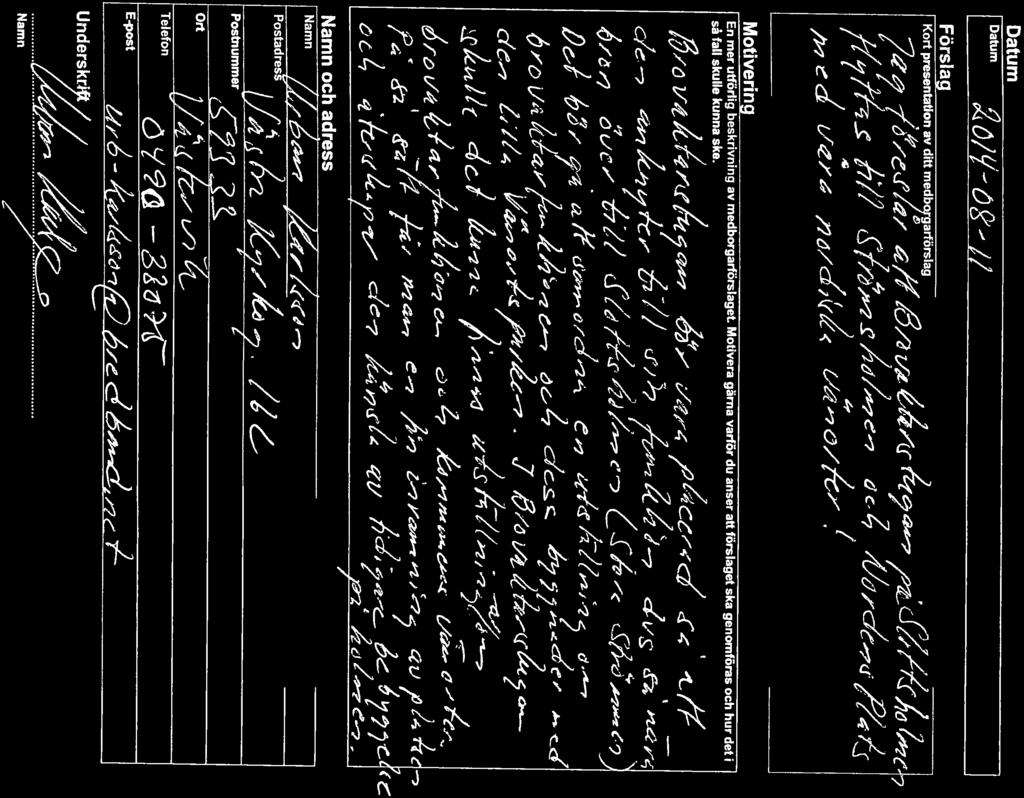 Datum
Datum
2014-08-11
Förslag
Kort presentation av ditt medborgarförslag
Jag föreslår att Brovaktarstugan på Slottsholmen
flyttas till Strömsholmen och Nordens Plats
med våra nordiska vänorter!
Motivering
En mer utförlig beskrivning av medborgarförslaget. Motivera gärna varför du anser att förslaget ska genomföras och hur det i
så fall skulle kunna ske.
Brovaktarstugan bör vara placerad så att
den anknyter till sin funktion dvs så nära
bron över till Slottsholmen (Stora Strömmen)
Det bör gå att samordna en utställning om
brovaktarfunktionen och dess byggnader med
den lilla Vänortsparken. I Brovaktarstugan
skulle det kunna finnas utställning om
brovaktarfunktionen och kommunens vänorter.
På så sätt får man en fin inramning av platsen
och återskapar den känsla av tidigare bebyggelse
på holmen.
Namn och adress
Namn
Urban Karlsson
Postadress
Västra Kyrkog. 16 C
Postnummer
593 33
Ort
Västervik
Telefon
0490-33075
E-post
urb-karlsson@bredband.net
Underskrift
Namn